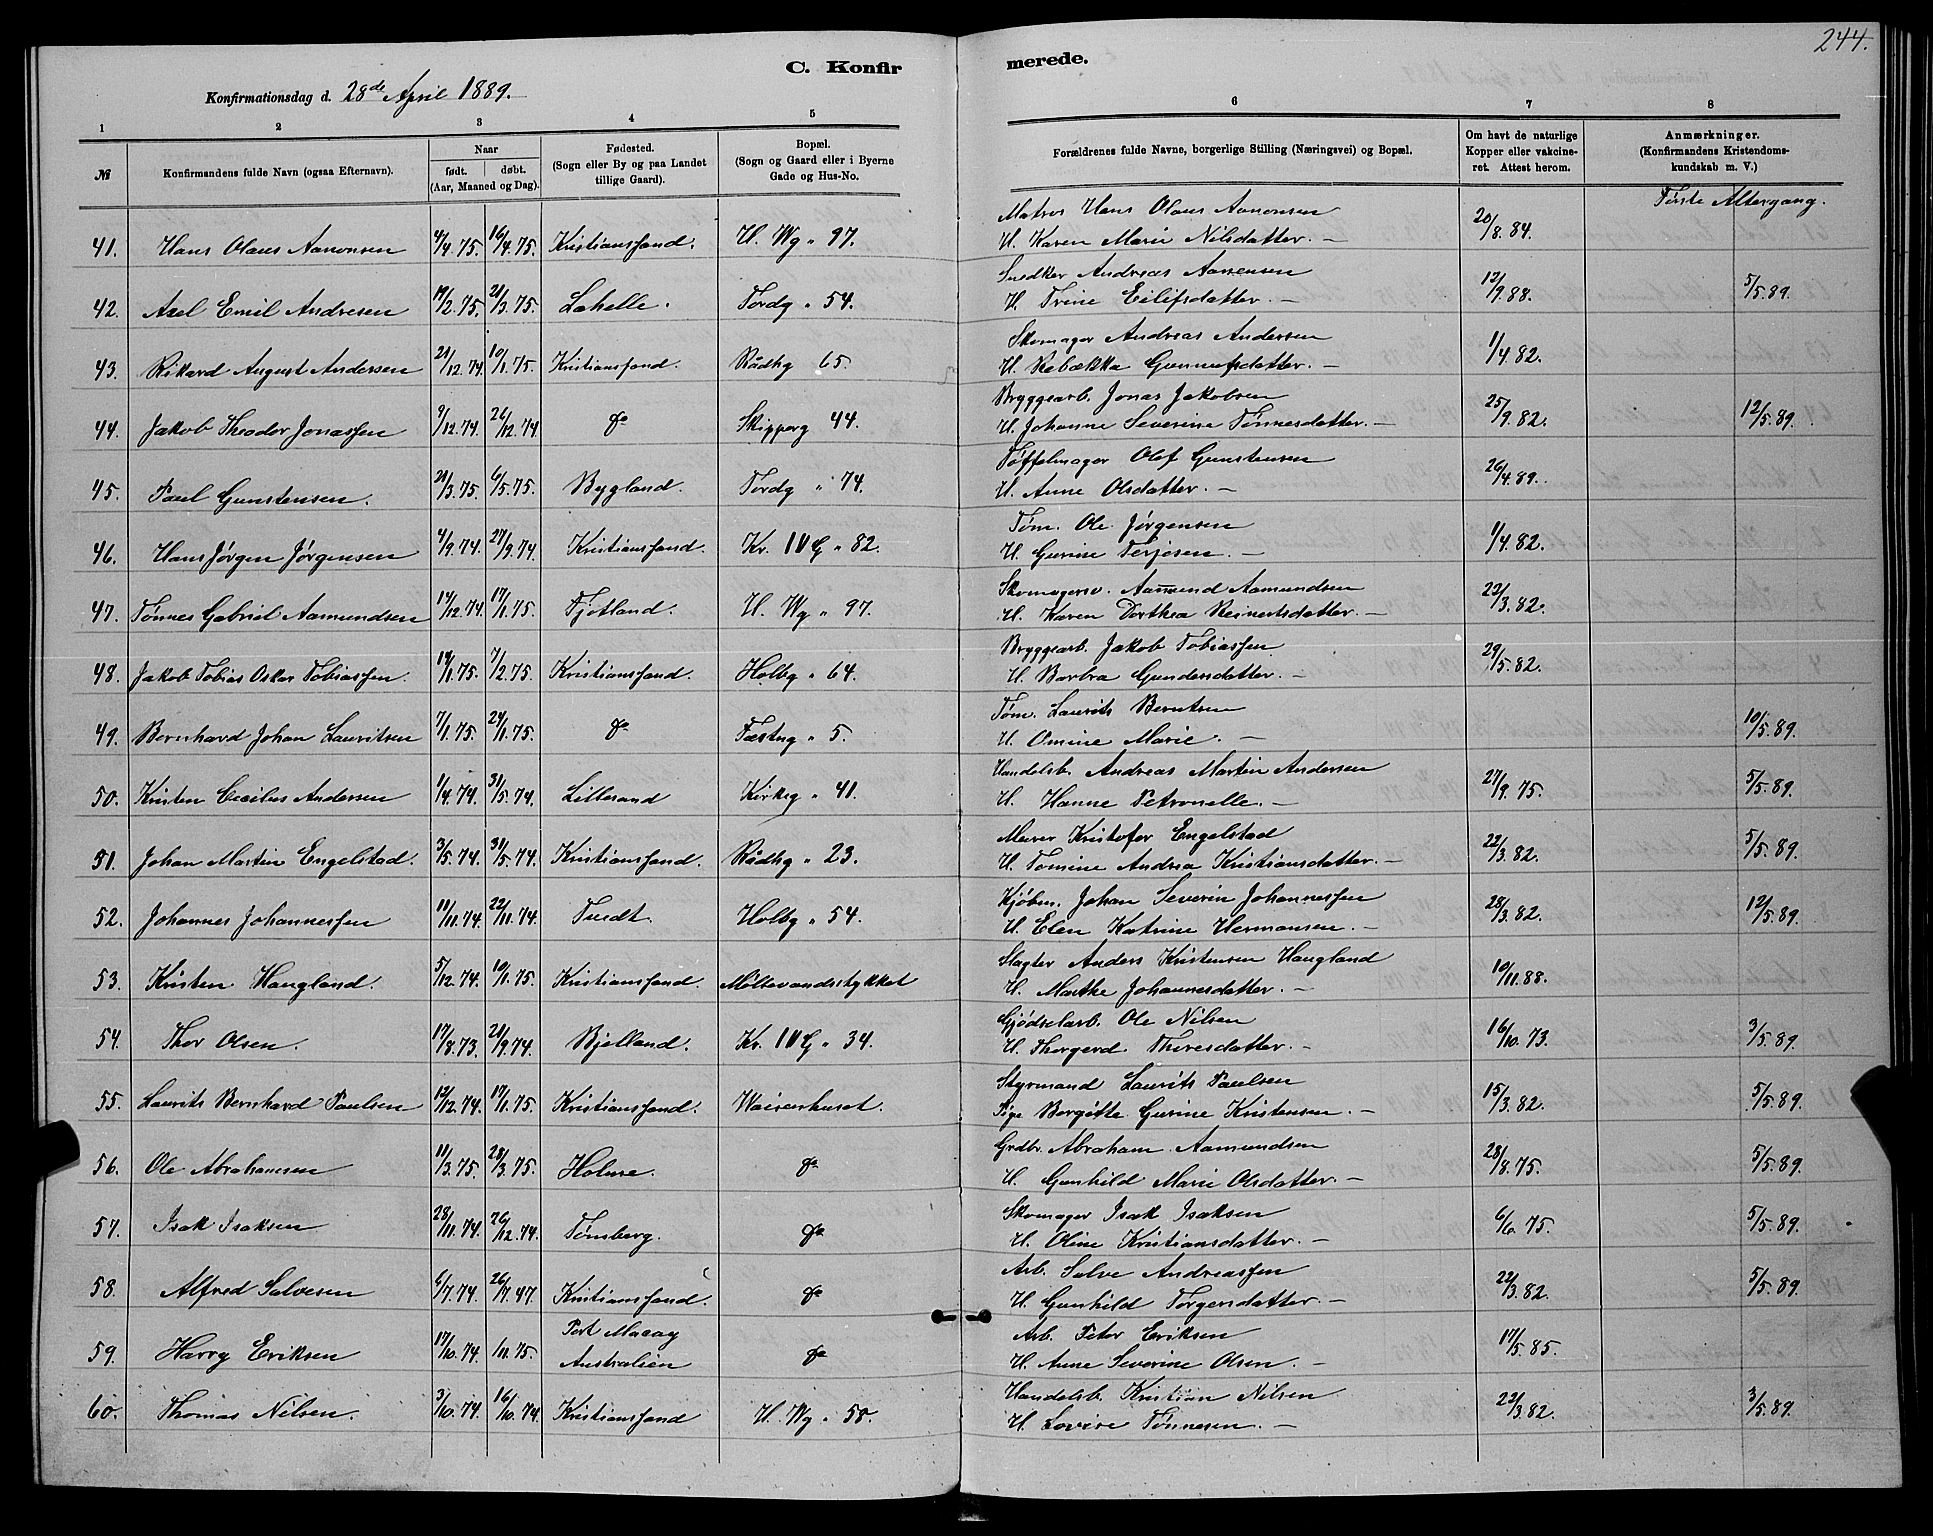 244.
C. Konfir merede.
Konfirmationsdag d. 28de April 1889.
1 2 3 4 5 6 7 8
№ Konfirmandens fulde Navn (ogsaa Efternavn). Naar født. døbt. (Aar, Maaned og Dag). Fødested. (Sogn eller By og paa Landet tillige Gaard). Bopæl. (Sogn og Gaard eller i Byerne Gade og Hus-No. Forældrenes fulde Navne, borgerlige Stilling (Næringsvei) og Bopæl. Om havt de naturlige Kopper eller vakcineret. Attest herom. Anmærkninger. (Konfirmandens Kristendomskundskab m. V.)
Første Altergang.
Matros Hans Olaus Aanonsen
41. Hans Olaus Aanonsen 4/4.75. 16/4.75. Kristianssand. H. Wg " 97. H. Karen Marie Nilsdatter. — 20/8.84.
Snedker Andreas Aanensen
42. Axel Emil Andresen 19/2.75. 21/3.75. Lahelle. Tordg " 54. H. Trine Eilifsdatter. — 12/9.88. 5/5.89.
Skomager Andreas Andersen
43. Rikard August Andersen 21/12.74. 10/1.75. Kristianssand. Rådhg 65. H. Rebækka Gunnufsdatter. — 1/4.82.
Bryggearb. Jonas Jakobsen
44. Jakob Theodor Jonassen 9/12.74. 26/12.74. do Skipperg 44. H. Johanne Severine Tønnesdatter. — 25/9.82. 12/5.89.
Tøffelmager Olof Gunstensen
45. Paul Gunstensen. 21/3.75. 6/5.75. Bygland. Tordg " 74. H. Anne Olsdatter. — 26/4.89.
Tøm. Ole Jørgensen
46. Hans Jørgen Jørgensen 4/9.74. 27/9.74. Kristianssand. Kr. IV G " 82. H. Gurine Terjesen. — 1/4.82.
Skomagersv. Aamund Aamundsen
47. Tønnes Gabriel Aamundsen 14/12.74. 17/1.75. Fjotland. H. Wg " 97. H. Karen Dorthea Reinertsdatter. — 22/3.82.
Bryggearb. Jakob Tobiassen
48. Jakob Tobias Oskar Tobiassen. 14/1.75. 7/2.75. Kristianssand. Holbg " 64. H. Barbra Gundersdatter. — 29/5.82.
Tøm. Laurits Berntsen
49. Bernhard Johan Lauritsen 7/1.75. 24/1.75. do Fæstng " 5. H. Omine Marie. — 10/5.89.
Handelsb. Andreas Martin Andersen
50. Kristen Cecilius Andersen 1/4.74. 31/5.74. Lillesand Kirkeg " 41. H. Hanne Petronelle. — 27/9.75. 5/5.89.
Murer Kristofer Engelstad
51. Johan Martin Engelstad. 3/5.74. 31/5.74. Kristianssand. Rådhg " 23. H. Tomine Andrea Kristiansdatter. — 22/3.82. 5/5.89.
Kjøbm. Johan Severin Johannessen
52. Johannes Johannessen 11/11.74. 22/11.74. Holbg " 54. H. Elen Katrine Hermansen. — 28/3.82. 12/5.89.
Slagter Anders Kristensen Haugland
53. Kristen Haugland. 5/12.74. 10/1.75. Kristianssand. Møllevandstykket H. Marthe Johannesdatter. — 10/11.88.
Gjødselarb. Ole Nilsen
54. Thor Olsen. 17/8.73. 21/9.74. Bjelland. Kr. IV G " 34. H. Thorgerd Thoresdatter. — 16/10.73. 3/5.89.
Styrmand Laurits Paulsen
55. Laurits Bernhard Paulsen 12/12.74. 17/1.75. Kristianssand. Waisenhuset. Pige Borgitte Gurine Kristensen. — 15/3.82. 5/5.89.
Grdbr. Abraham Aamundsen
56. Ole Abrahamsen 11/3.75. 28/3.75. Holme. do H. Gunhild Marie Olsdatter. — 28/8.75. 5/5.89.
Skomager Isak Isaksen
57. Isak Isaksen 28/11.74. 26/12.74. Tønsberg. do H. Oline Kristiansdatter. — 6/6.75. 5/5.89.
Arb. Salve Andreassen
58. Alfred Salvesen 6/7.74. 26/7.47. Kristianssand. do H. Gunhild Torgersdatter. — 22/3.82. 5/5.89.
Arb. Peter Eriksen
59. Harry Eriksen 17/10.74. 1/11.75. Port Macay Australien do H. Anne Severine Olsen. — 17/5.85.
Handelsb. Kristian Nilsen
60. Thomas Nilsen. 3/10.74. 16/10.74. Kristianssand H. Wg " 58. H. Lovise Tønnesen. — 22/3.82. 3/5.89.